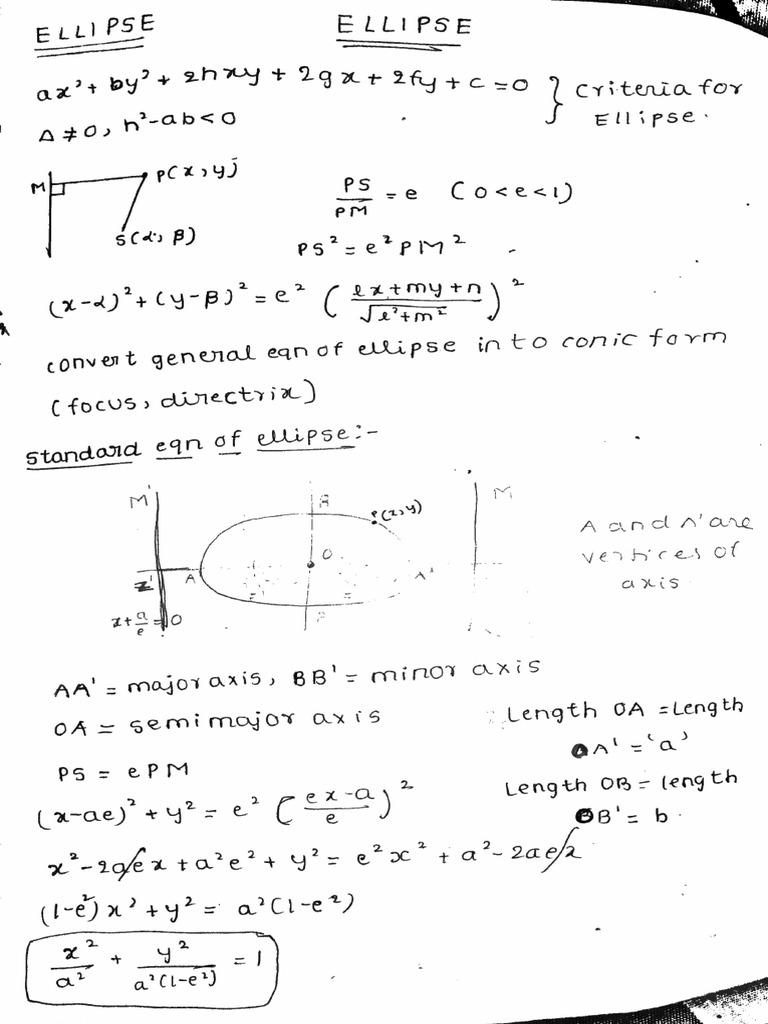 ELLIPSE ELLIPSE
ax²+ by² + 2hxy + 2gx + 2fy + c = 0 } Criteria for
Δ ≠ 0, h²-ab < 0 Ellipse.
M P(x, y)
S(α, β)
PS/PM = e (0 < e < 1)
PS² = e² PM²
(x-α)² + (y-β)² = e² ((lx+my+n)/√(l²+m²))²
convert general eqn of ellipse in to conic form
(focus, directrix)
standard eqn of ellipse:-
M' B P(x,y) M
Z' A O A'
x + a/e = 0
A and A' are
vertices of
axis
AA' = major axis, BB' = minor axis
OA = semi major axis
Length OA = Length
OA' = 'a'
Length OB = length
OB' = b.
PS = e PM
(x-ae)² + y² = e² ((ex-a)/e)²
x²-2aex + a²e² + y² = e²x² + a² - 2aex
(1-e²) x² + y² = a²(1-e²)
x²/a² + y²/(a²(1-e²)) = 1